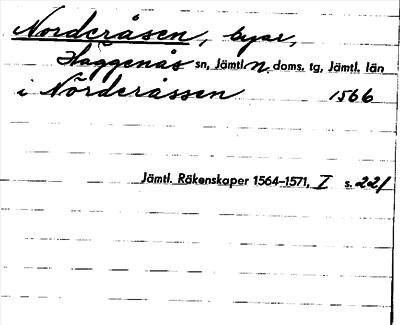 Norderåsen, byar,
Häggenås sn, Jämtl. n. doms. tg, Jämtl. län
i Nörderåssen 1566
Jämtl. Räkenskaper 1564–1571, I s. 221